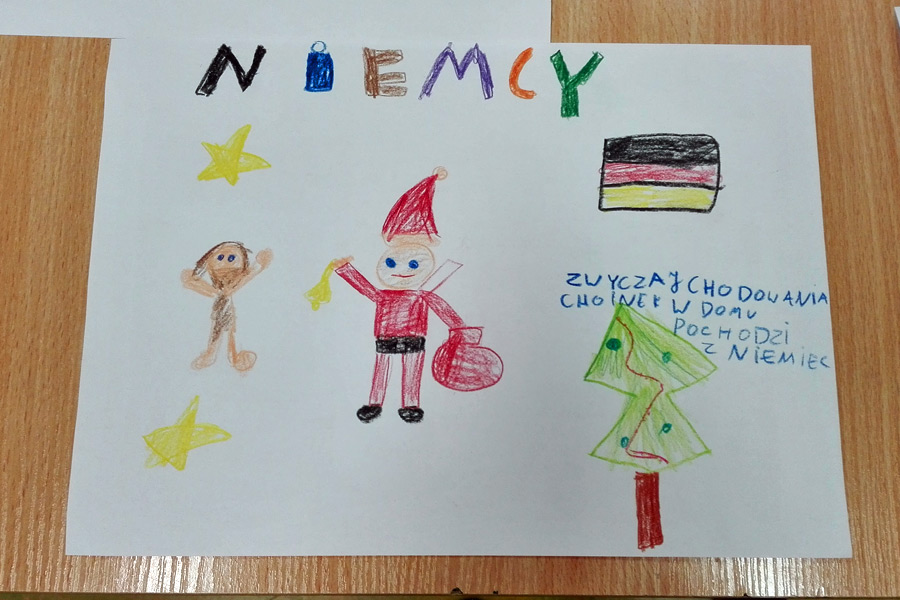 NIEMCY
ZWYCZAJ CHODOWANIA
CHOINEK W DOMU
POCHODZI
Z NIEMIEC